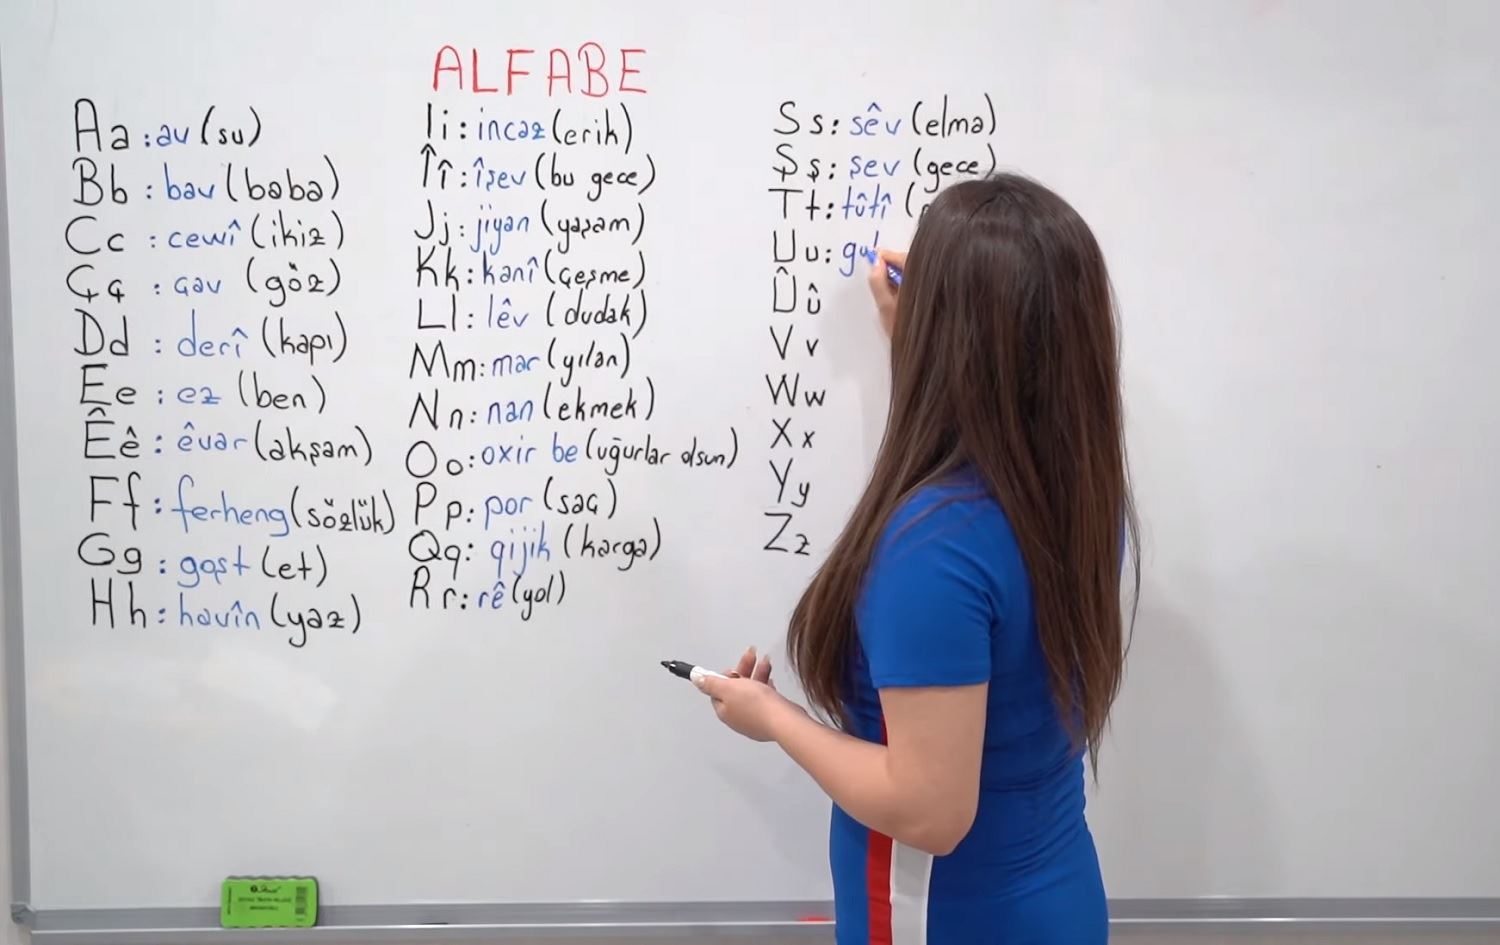 ALFABE
Aa : av (su)
Bb : bav (baba)
Cc : cewî (ikiz)
Çç : çav (göz)
Dd : derî (kapı)
Ee : ez (ben)
Êê : êvar (akşam)
Ff : ferheng (sözlük)
Gg : goşt (et)
Hh : havîn (yaz)
Ii : incaz (erik)
Îî : îşev (bu gece)
Jj : jiyan (yaşam)
Kk : kanî (çeşme)
Ll : lêv (dudak)
Mm : mar (yılan)
Nn : nan (ekmek)
Oo : oxir be (uğurlar olsun)
Pp : por (saç)
Qq : qijik (karga)
Rr : rê (yol)
Ss : sêv (elma)
Şş : şev (gece)
Tt : tûtî (
Uu : gul
Ûû
Vv
Ww
Xx
Yy
Zz